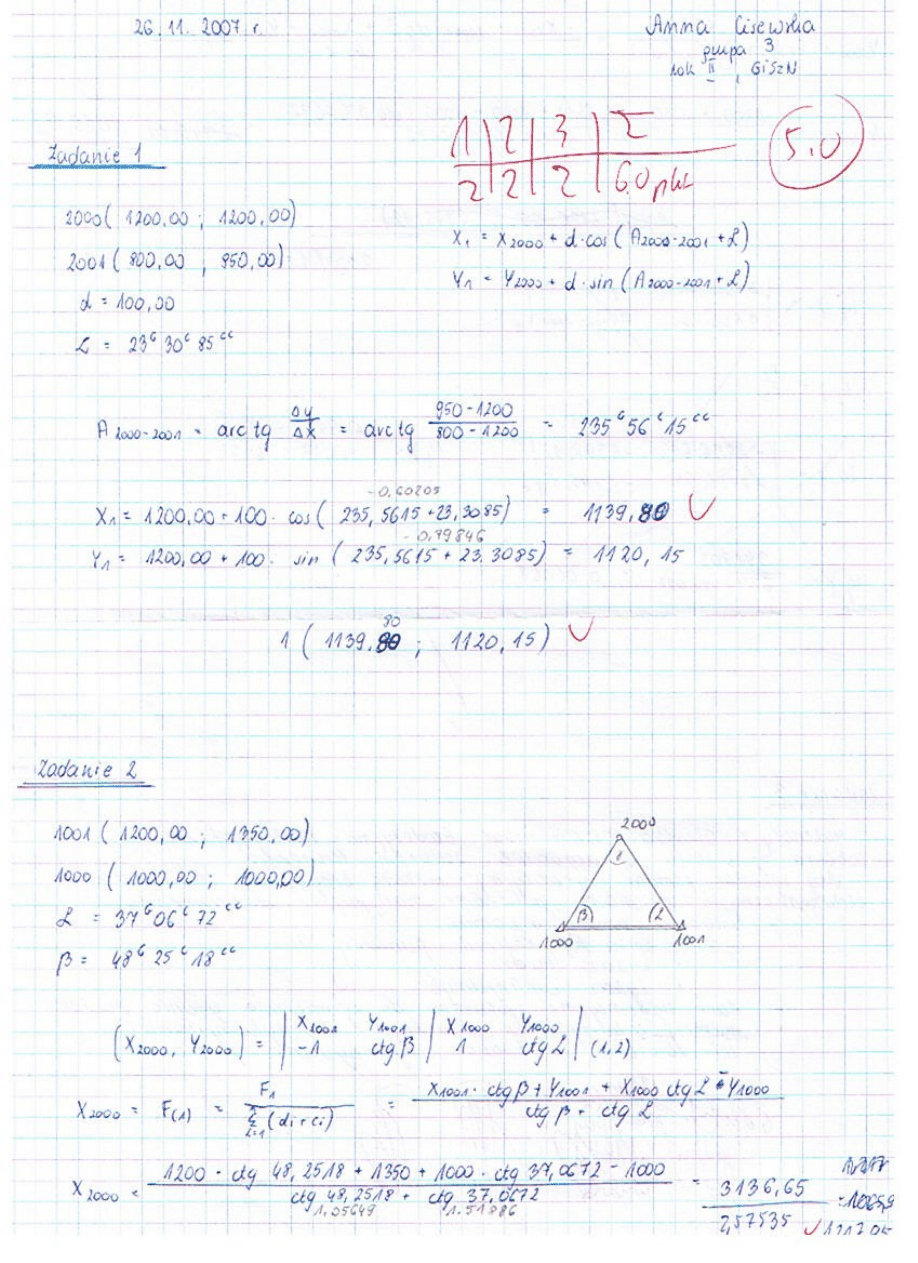 26.11.2007 r.
Anna Cisewska
grupa 3
rok II, GiSzN
1 | 2 | 3 | Σ
2 | 2 | 2 | 6.0 pkt
5.0
Zadanie 1
2000 ( 1200,00 ; 1200,00)
2001 ( 800,00 ; 950,00)
d = 100,00
L = 23ᴳ 30ᶜ 85ᶜᶜ
X₁ = X₂₀₀₀ + d·cos ( A₂₀₀₀₋₂₀₀₁ + L)
Y₁ = Y₂₀₀₀ + d·sin ( A₂₀₀₀₋₂₀₀₁ + L)
A₂₀₀₀₋₂₀₀₁ = arc tg Δy/ΔX = arc tg 950-1200/800-1200 = 235ᴳ 56ᶜ 15ᶜᶜ
-0,60205
X₁ = 1200,00 + 100 · cos ( 235,5615 + 23,3085) = 1139,80
-0,79846
Y₁ = 1200,00 + 100 · sin ( 235,5615 + 23.3085) = 1120,15
80
1 ( 1139.80 ; 1120,15)
Zadanie 2
1001 ( 1200,00 ; 1350,00)
1000 ( 1000,00 ; 1000,00)
L = 37ᴳ 06ᶜ 72ᶜᶜ
β = 48ᴳ 25ᶜ 18ᶜᶜ
2000
β
L
1000
1001
(X₂₀₀₀, Y₂₀₀₀) = | X₁₀₀₁ Y₁₀₀₁ | X₁₀₀₀ Y₁₀₀₀ |
-1 ctg β | 1 ctg L | (1,2)
X₂₀₀₀ = F(1) = F₁ / Σ (di+ci) = X₁₀₀₁ · ctg β + Y₁₀₀₁ + X₁₀₀₀ ctg L - Y₁₀₀₀ / ctg β + ctg L
X₂₀₀₀ = 1200 · ctg 48,2518 + 1350 + 1000 · ctg 37,0672 - 1000 / ctg 48,2518 + ctg 37,0672 = 3136,65 / 2,57535
1.05649 1.51886